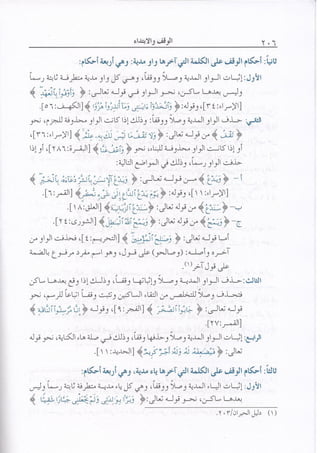 ٢٠٦ الوقف والابتداء
ثانياً: أحكام الوقف على الكلمة التي آخرها واو مدية: وهي أربعة أحكام:
الأول: إثبات الواو المدية وصلاً ووقفاً، وهي كل واو مدية متطرفة ثابتة رسماً
وليس بعدها ساكن، نحو في قوله تعالى: ﴿ وَأَوْفُوا بِالْعَهْدِ ﴾
[الإسراء: ٣٤]، وقوله: ﴿ وَاتَّخَذُوا آيَاتِي وَمَا أُنذِرُوا هُزُوًا ﴾ [الكهف: ٥٦].
الثاني: حذف الواو المدية وصلاً ووقفاً: وذلك إذا كانت الواو محذوفة للجزم، نحو
﴿ تَقْفُ ﴾ من قوله تعالى: ﴿ وَلَا تَقْفُ مَا لَيْسَ لَكَ بِهِ عِلْمٌ ﴾ [الإسراء: ٣٦]،
أو إذا كانت الواو محذوفة للبناء، نحو ﴿ وَاعْفُ عَنَّا ﴾ [البقرة: ٢٨٦]، أو إذا
حذفت الواو رسماً، وذلك في المواضع التالية:
أ – ﴿ وَيَدْعُ ﴾ من قوله تعالى: ﴿ وَيَدْعُ الْإِنسَانُ بِالشَّرِّ دُعَاءَهُ بِالْخَيْرِ ﴾
[الإسراء: ١١]، وقوله: ﴿ يَوْمَ يَدْعُ الدَّاعِ إِلَىٰ شَيْءٍ نُّكُرٍ ﴾ [القمر: ٦].
ب– ﴿ سَنَدْعُ ﴾ من قوله تعالى: ﴿ سَنَدْعُ الزَّبَانِيَةَ ﴾ [العلق: ١٨].
ج– ﴿ وَيَمْحُ ﴾ من قوله تعالى: ﴿ وَيَمْحُ اللَّهُ الْبَاطِلَ ﴾ [الشورى: ٢٤].
أما قوله تعالى: ﴿ وَصَالِحُ الْمُؤْمِنِينَ ﴾ [التحريم: ٤]، فحذفت الواو من
آخره وأصله: (وصالحو) على قول، وهو اسم مفرد مرفوع بالضمة
على قول آخر(١).
الثالث: حذف الواو المدية وصلاً وإثباتها وقفاً، وذلك إذا وقع بعدها ساكن
فتحذف وصلاً للتخلص من التقاء الساكنين وتثبت وقفاً اتباعاً للرسم، نحو
قوله تعالى: ﴿ جَابُوا الصَّخْرَ ﴾ [الفجر: ٩]، وقوله: ﴿ إِنَّا مُرْسِلُو النَّاقَةِ ﴾
[القمر: ٢٧].
الرابع: إثبات الواو المدية وصلاً وحذفها وقفاً، وذلك في صلة هاء الكناية، نحو قوله
تعالى: ﴿ فَيُضَاعِفَهُ لَهُ وَلَهُ أَجْرٌ كَرِيمٌ ﴾ [الحديد: ١١].
ثالثاً: أحكام الوقف على الكلمة التي آخرها ياء مدية، وهي أربعة أحكام:
الأول: إثبات الياء المدية وصلاً ووقفاً، وهي كل ياء مدية متطرفة ثابتة رسماً وليس
بعدها ساكن، نحو قوله تعالى: ﴿ وَبَرًّا بِوَالِدَتِي وَلَمْ يَجْعَلْنِي جَبَّارًا شَقِيًّا ﴾
(١) دليل الحيران/ ٢٠٣.